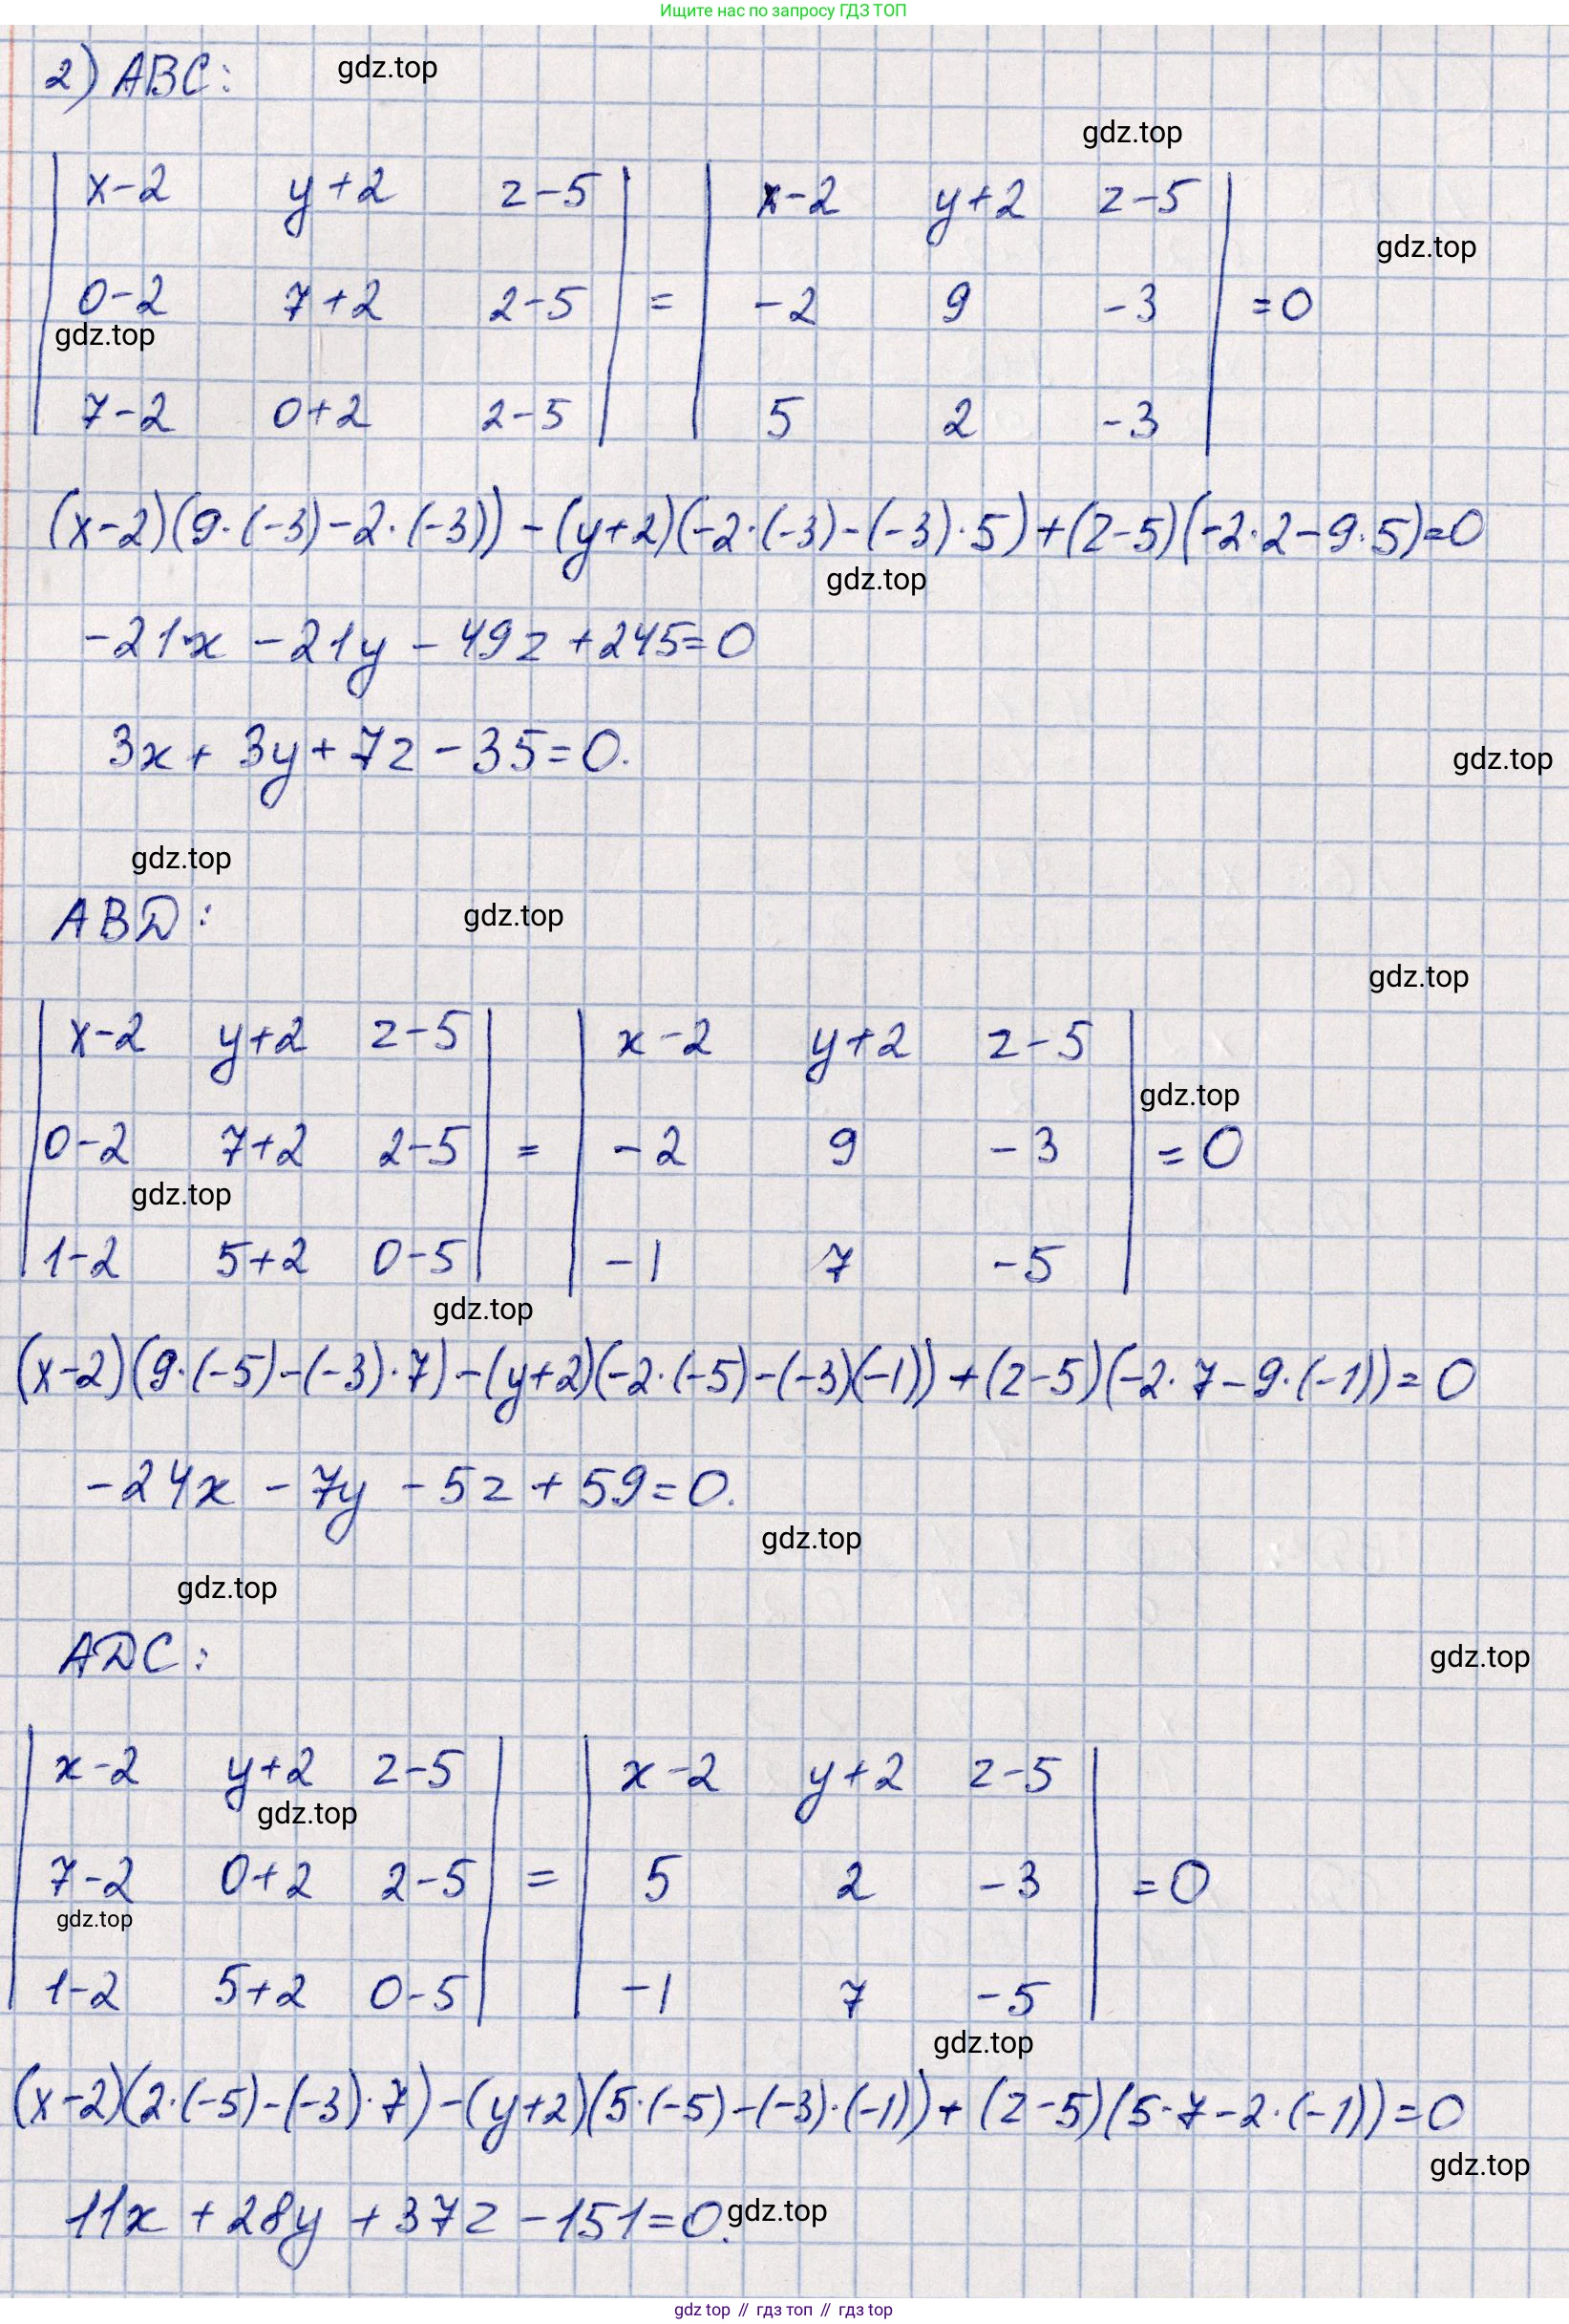 Ищите нас по запросу ГДЗ ТОП
2) ABC:
gdz.top
gdz.top
| x-2 y+2 z-5 | = | x-2 y+2 z-5 |
gdz.top
| 0-2 7+2 2-5 | = | -2 9 -3 | = 0
gdz.top
| 7-2 0+2 2-5 | | 5 2 -3 |
(x-2)(9·(-3)-2·(-3))-(y+2)(-2·(-3)-(-3)·5)+(z-5)(-2·2-9·5)=0
gdz.top
-21·x-21y-49z+245=0
3x+3y+7z-35=0.
gdz.top
gdz.top
ABD:
gdz.top
gdz.top
| x-2 y+2 z-5 | | x-2 y+2 z-5 |
gdz.top
| 0-2 7+2 2-5 | = | -2 9 -3 | = 0
gdz.top
| 1-2 5+2 0-5 | | -1 7 -5 |
gdz.top
(x-2)(9·(-5)-(-3)·7)-(y+2)(-2·(-5)-(-3)(-1))+(z-5)(-2·7-9·(-1))=0
-24x-7y-5z+59=0.
gdz.top
gdz.top
ADC:
gdz.top
| x-2 y+2 z-5 | | x-2 y+2 z-5 |
gdz.top
| 7-2 0+2 2-5 | = | 5 2 -3 | = 0
gdz.top
| 1-2 5+2 0-5 | | -1 7 -5 |
gdz.top
(x-2)(2·(-5)-(-3)·7)-(y+2)(5·(-5)-(-3)·(-1))+(z-5)(5·7-2·(-1))=0
gdz.top
11x+28y+37z-151=0.
gdz.top
gdz top // гдз топ // гдз top